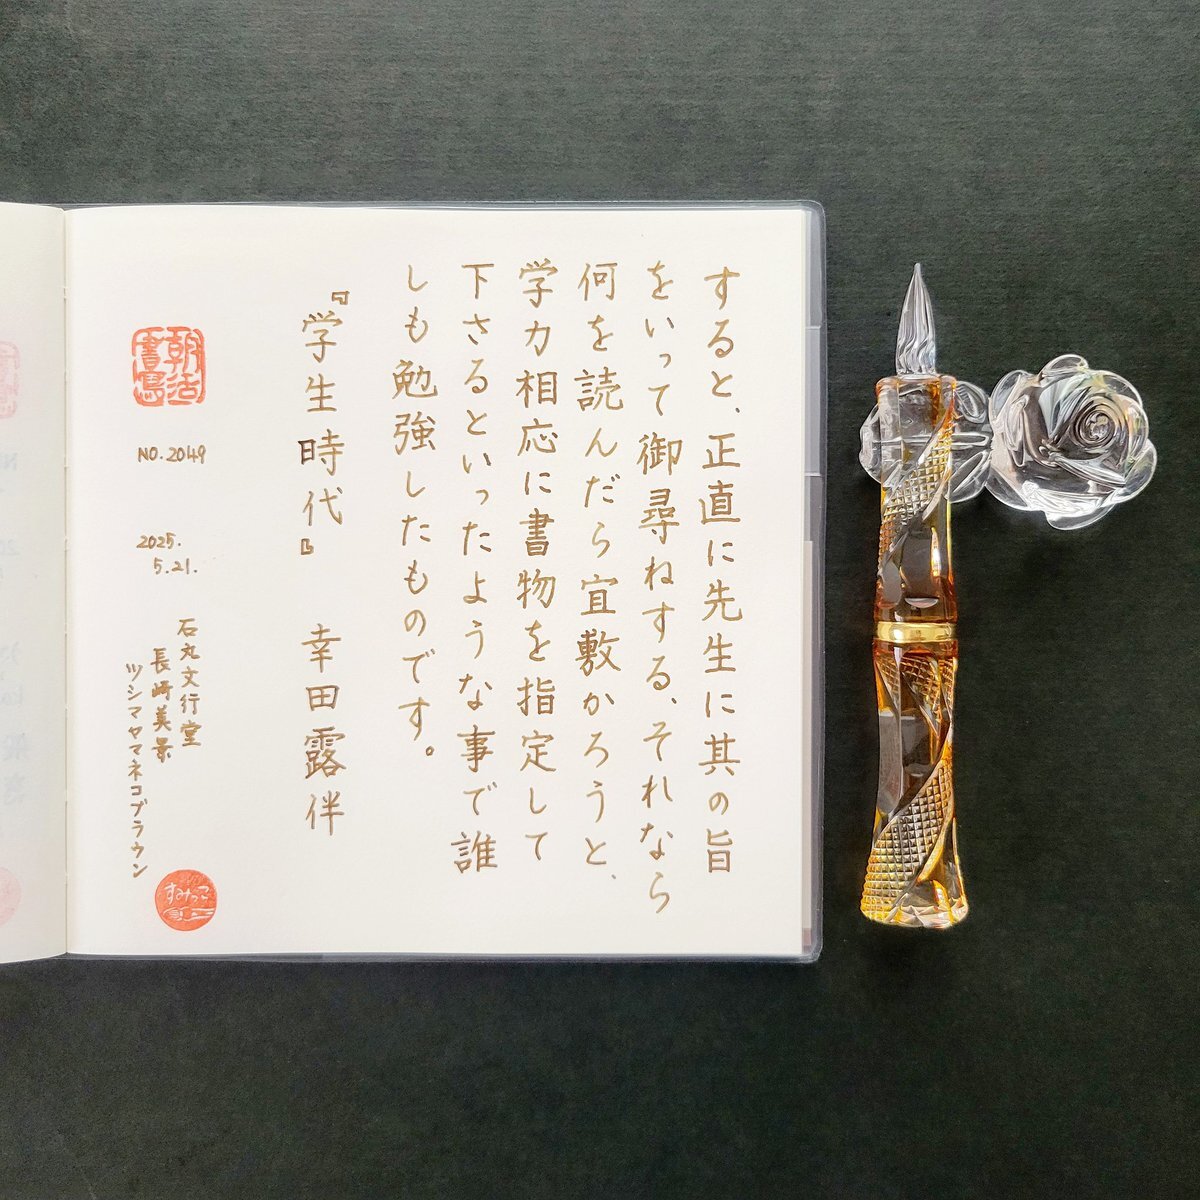 すると、正直に先生に其の旨
をいって御尋ねする、それなら
何を読んだら宜敷かろうと、
学力相応に書物を指定して
下さるといったような事で誰
しも勉強したものです。
『学生時代』 幸田露伴
朝活
書写
NO.2049
2025.
5.21.
石丸文行堂
長崎美景
ツシマヤマネコブラウン
すみっこ